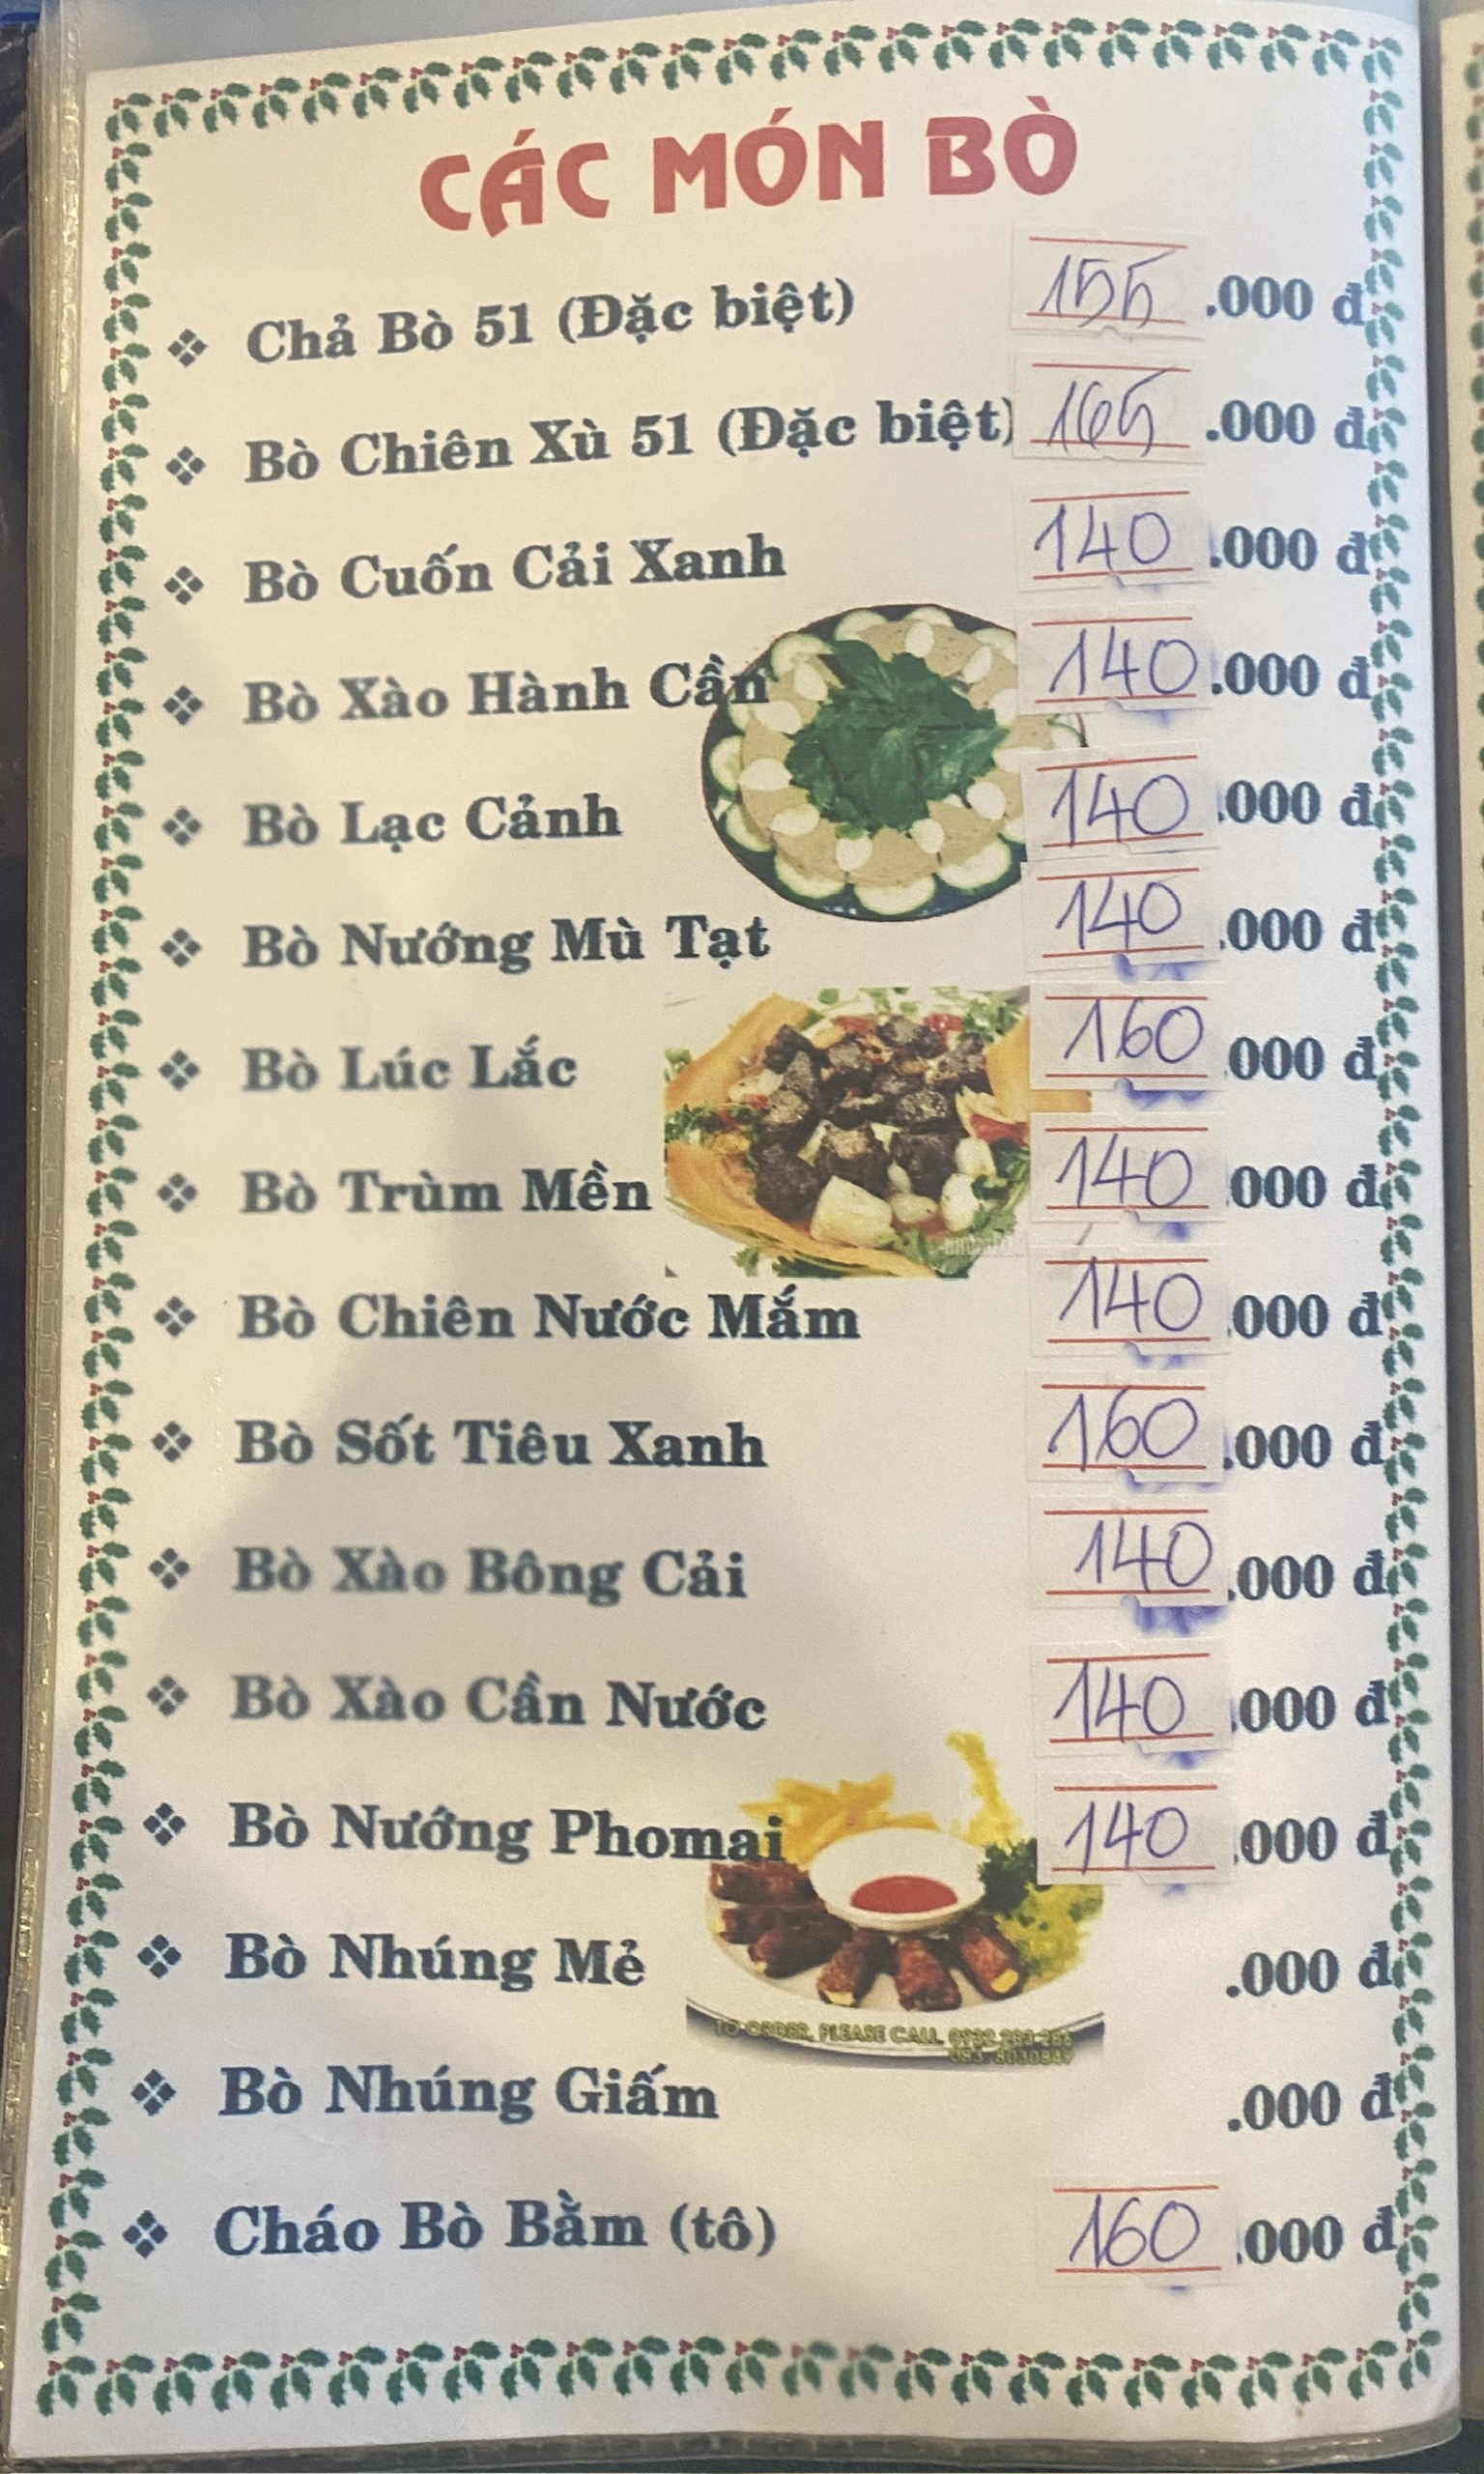 CÁC MÓN BÒ
❖ Chả Bò 51 (Đặc biệt) 155 .000 đ
❖ Bò Chiên Xù 51 (Đặc biệt) 165 .000 đ
❖ Bò Cuốn Cải Xanh 140 .000 đ
❖ Bò Xào Hành Cần 140 .000 đ
❖ Bò Lạc Cảnh 140 .000 đ
❖ Bò Nướng Mù Tạt 140 .000 đ
❖ Bò Lúc Lắc 160 .000 đ
❖ Bò Trùm Mền 140 .000 đ
❖ Bò Chiên Nước Mắm 140 .000 đ
❖ Bò Sốt Tiêu Xanh 160 .000 đ
❖ Bò Xào Bông Cải 140 .000 đ
❖ Bò Xào Cần Nước 140 .000 đ
❖ Bò Nướng Phomai 140 .000 đ
❖ Bò Nhúng Mẻ .000 đ
TO ORDER, PLEASE CALL
❖ Bò Nhúng Giấm .000 đ
❖ Cháo Bò Bằm (tô) 160 .000 đ